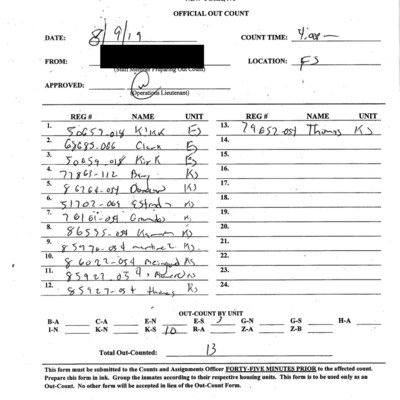 OFFICIAL OUT COUNT
DATE: 8/9/19 COUNT TIME: 4:00
FROM: LOCATION: FS
(Staff Member Preparing Out Count)
APPROVED:
(Operations Lieutenant)
REG # NAME UNIT REG # NAME UNIT
1. 50657-018 Kirk ES 13. 79652-054 Thomas KS
2. 68685-006 Clark ES 14.
3. 50659-018 Kirk ES 15.
4. 77861-112 KS 16.
5. 86764-054 KS 17.
6. 51702-069 Estrada KS 18.
7. 76161-054 KS 19.
8. 86535-054 KS 20.
9. 85976-054 Martinez KS 21.
10. 86022-054 KS 22.
11. 85927-03 KS 23.
12. 85927-054 KS 24.
OUT-COUNT BY UNIT
B-A C-A E-N E-S 3 G-N G-S H-A
I-N K-N K-S 10 R-A Z-A Z-B
Total Out-Counted: 13
This form must be submitted to the Counts and Assignments Officer FORTY-FIVE MINUTES PRIOR to the affected count.
Prepare this form in ink. Group the inmates according to their respective housing units. This form is to be used only as an
Out-Count. No other form will be accepted in lieu of the Out-Count Form.